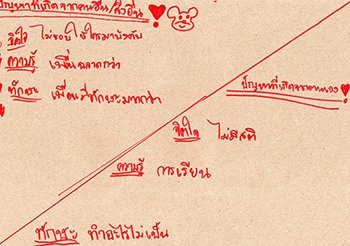 ปัญหาที่เกิดจากคนอื่น/สิ่งอื่น
จิตใจ ไม่ชอบให้ใครมาบังคับ
ความรู้ เพื่อนฉลาดกว่า
ทักษะ เพื่อนมีทักษะมากกว่า
ปัญหาที่เกิดจากตนเอง
จิตใจ ไม่มีสติ
ความรู้ การเรียน
ทักษะ ทำอะไรไม่เป็น